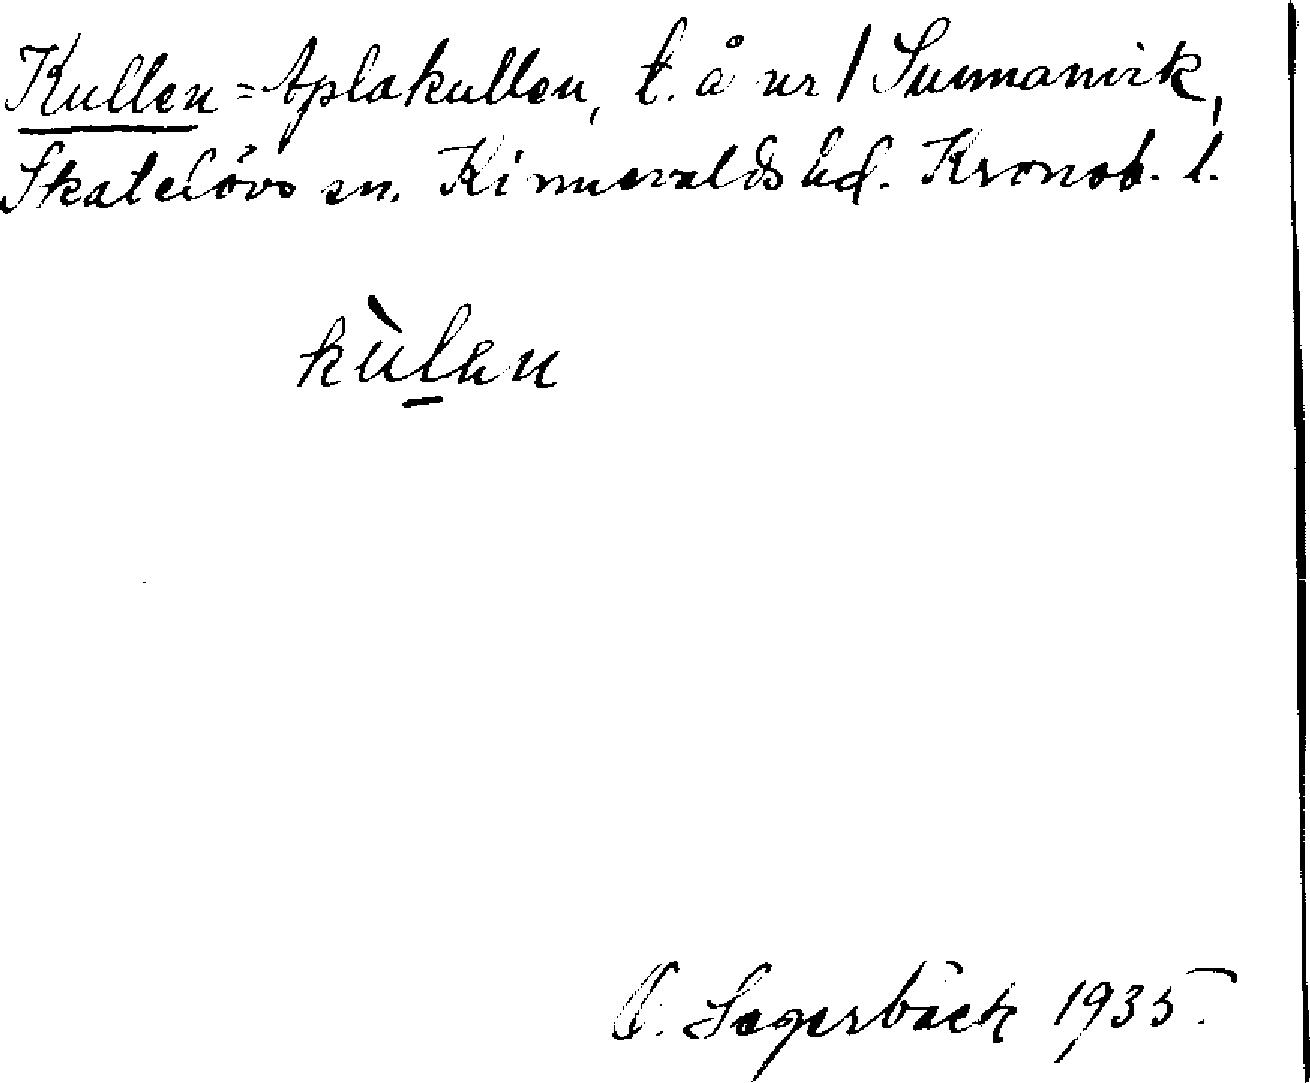 Kullen = Aplakullen, t. å nr 1 Sunnanvik,
Skatelövs sn. Kinnevalds hd. Kronob. l.
kùlen
O. Sagerbäck 1935.